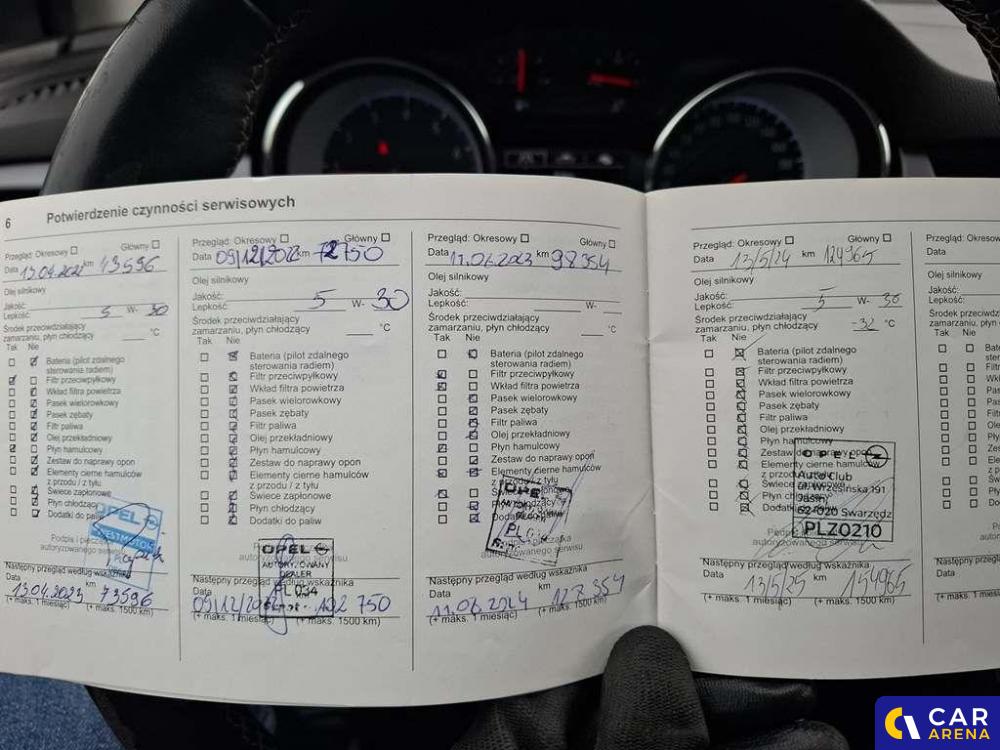 6 Potwierdzenie czynności serwisowych
Przegląd: Okresowy Główny
Data 13.04.2022 km 43596
Olej silnikowy
Jakość:
Lepkość: 5 W- 30
Środek przeciwdziałający
zamarzaniu, płyn chłodzący °C
Tak Nie
Bateria (pilot zdalnego
sterowania radiem)
Filtr przeciwpyłkowy
Wkład filtra powietrza
Pasek wielorowkowy
Pasek zębaty
Filtr paliwa
Olej przekładniowy
Płyn hamulcowy
Zestaw do naprawy opon
Elementy cierne hamulców
z przodu / z tyłu
Świece zapłonowe
Płyn chłodzący
Dodatki do paliw
OPEL
WESTMOTOR
Podpis i pieczątka
autoryzowanego serwisu
Następny przegląd według wskaźnika
Data 13.04.2023 km 73596
(+ maks. 1 miesiąc) (+ maks. 1500 km)
Przegląd: Okresowy Główny
Data 09/12/2022 km 72750
Olej silnikowy
Jakość:
Lepkość: 5 W- 30
Środek przeciwdziałający
zamarzaniu, płyn chłodzący °C
Tak Nie
Bateria (pilot zdalnego
sterowania radiem)
Filtr przeciwpyłkowy
Wkład filtra powietrza
Pasek wielorowkowy
Pasek zębaty
Filtr paliwa
Olej przekładniowy
Płyn hamulcowy
Zestaw do naprawy opon
Elementy cierne hamulców
z przodu / z tyłu
Świece zapłonowe
Płyn chłodzący
Dodatki do paliw
OPEL
AUTORYZOWANY
DEALER
PL 034
autoryzowanego serwisu
Następny przegląd według wskaźnika
Data 09/12/ km 102 750
(+ maks. 1 miesiąc) (+ maks. 1500 km)
Przegląd: Okresowy Główny
Data 11.06.2023 km 98354
Olej silnikowy
Jakość:
Lepkość: W-
Środek przeciwdziałający
zamarzaniu, płyn chłodzący °C
Tak Nie
Bateria (pilot zdalnego
sterowania radiem)
Filtr przeciwpyłkowy
Wkład filtra powietrza
Pasek wielorowkowy
Pasek zębaty
Filtr paliwa
Olej przekładniowy
Płyn hamulcowy
Zestaw do naprawy opon
Elementy cierne hamulców
z przodu / z tyłu
Świece zapłonowe
Płyn chłodzący
Dodatki do paliw
OPEL
autoryzowanego serwisu
Następny przegląd według wskaźnika
Data 11.06.2024 km 128 354
(+ maks. 1 miesiąc) (+ maks. 1500 km)
Przegląd: Okresowy Główny
Data 13/5/24 km 124965
Olej silnikowy
Jakość: -
Lepkość: 5 W- 30
Środek przeciwdziałający
zamarzaniu, płyn chłodzący -32 °C
Tak Nie
Bateria (pilot zdalnego
sterowania radiem)
Filtr przeciwpyłkowy
Wkład filtra powietrza
Pasek wielorowkowy
Pasek zębaty
Filtr paliwa
Olej przekładniowy
Płyn hamulcowy
Zestaw do naprawy opon
Elementy cierne hamulców
z przodu / z tyłu
Świece zapłonowe
Płyn chłodzący
Dodatki do paliw
OPEL
Auto Club
ul. Wrzesińska 191
Jasin
62-020 Swarzędz
PLZ0210
autoryzowanego serwisu
Następny przegląd według wskaźnika
Data 13/5/25 km 154965
(+ maks. 1 miesiąc) (+ maks. 1500 km)
Data
Olej silnikowy
Jakość:
Lepkość:
Tak Nie
Data
CAR
ARENA